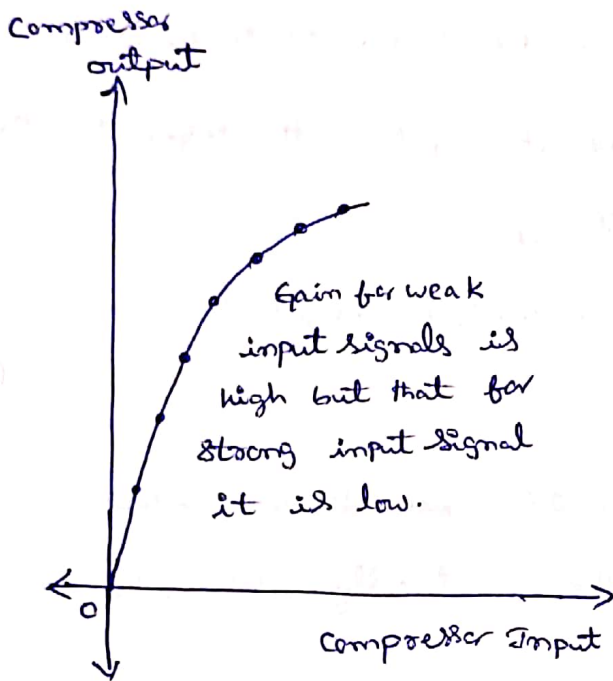 Compressor
output
Gain for weak
input signals is
high but that for
strong input signal
it is low.
0
Compressor Input